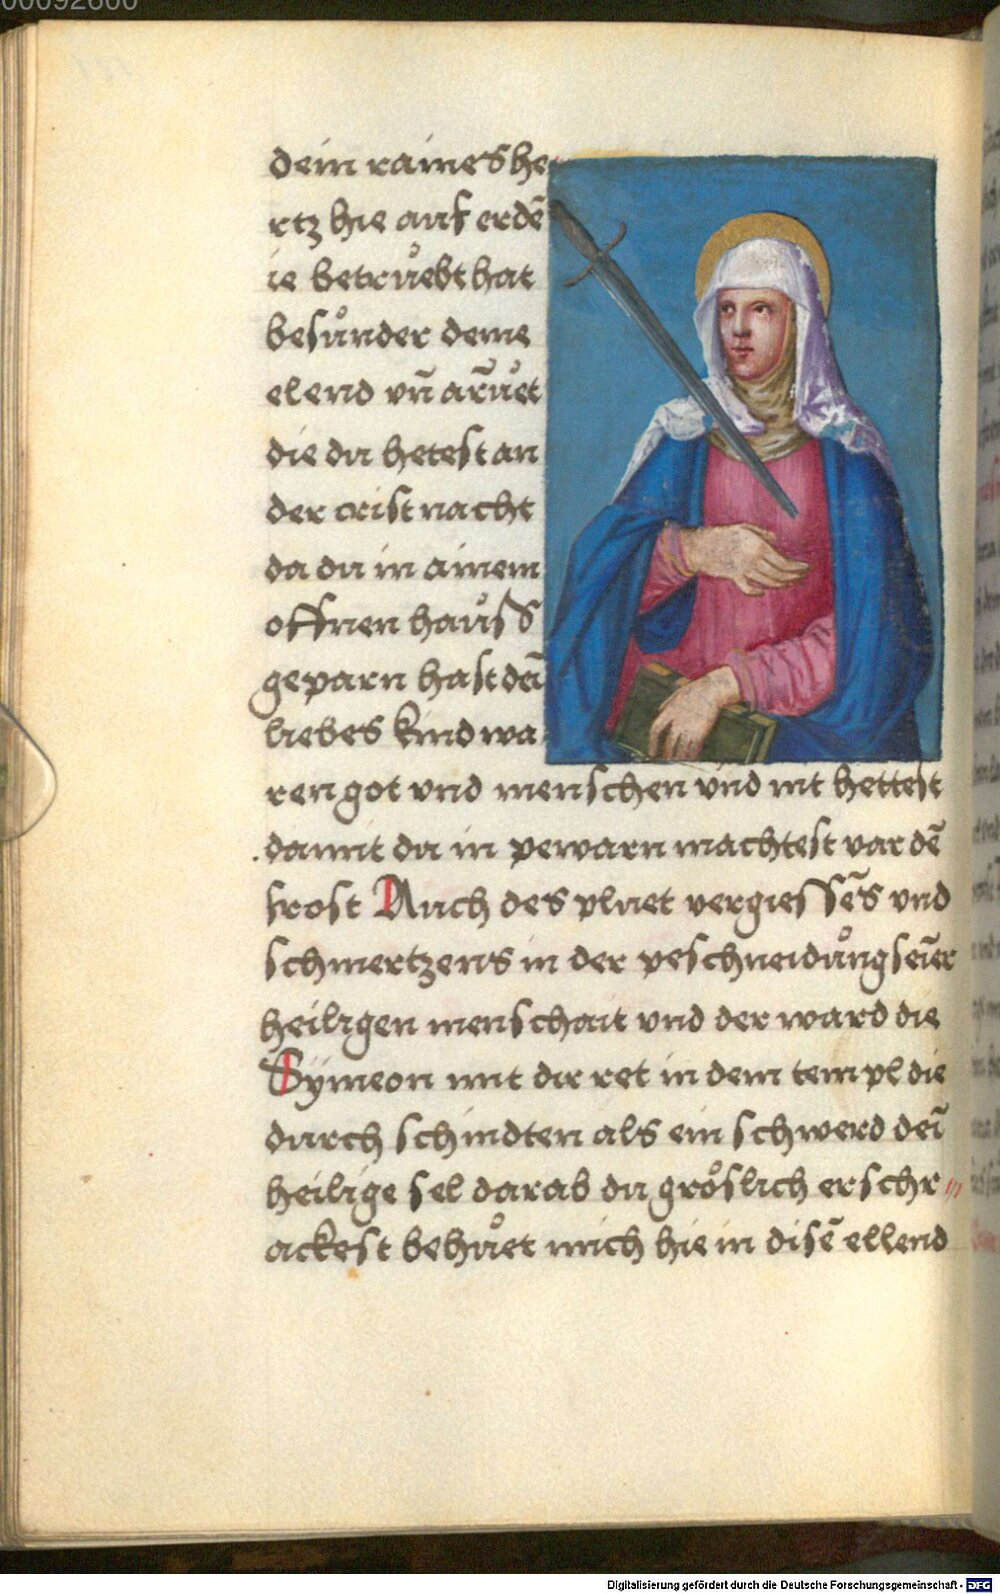 dein raines he
rtz hie auf erdē
ie betrůebt hat
besůnder deine
elend vn̄ arm̄ůet
die du hetest an
der cristnacht
da du in ainem
offnen hauß
geparn hast deī
liebes kind wa
ren got vnd menschen vnd nit hettest
damit du in pewarn machtest var dē
frost Auch des pluet vergiessēs vnd
schmertzens in der peschneidůng seīer
heiligen menschait vnd der ward die
Sÿmeon mit dir ret in dem templ die
durch schindten als ein schwerd deī
heilige sel darab du gröslich erschr
ackest behůet mich hie in disē ellend
Digitalisierung gefördert durch die Deutsche Forschungsgemeinschaft - DFG